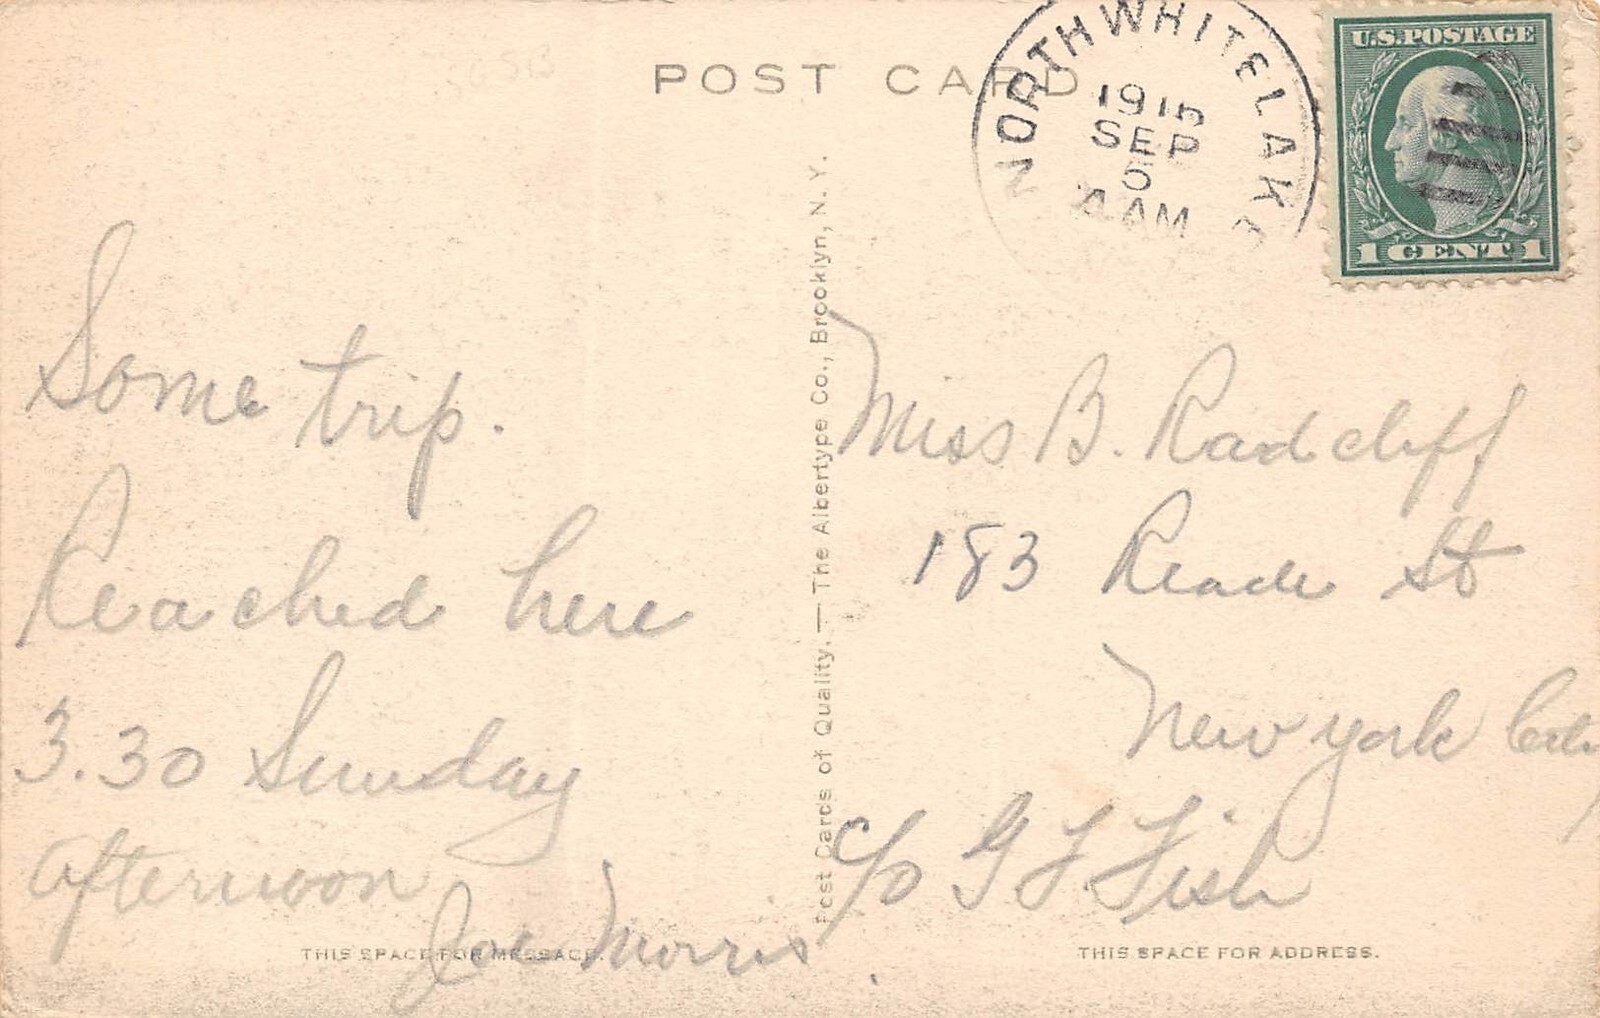 POST CARD
NORTH WHITE LAKE
1915
SEP
5
AM
U.S. POSTAGE
1 CENT 1
Some trip.
Reached here
3.30 Sunday
afternoon
Joe Morris.
THIS SPACE FOR MESSAGE.
Post Cards of Quality. — The Albertype Co., Brooklyn, N. Y.
Miss B. Radcliff
183 Reade St
New York City
c/o G F Fish
THIS SPACE FOR ADDRESS.